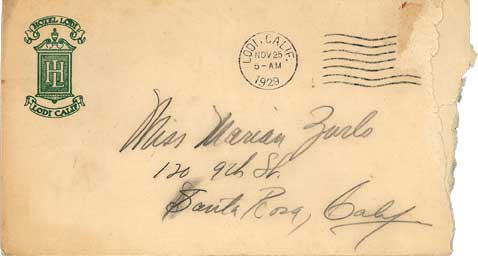 HOTEL LODI
H
LODI CALIF.
LODI, CALIF.
NOV 25
5-AM
1929
Miss Marian Zurlo
120 9th St.
Santa Rosa, Calif